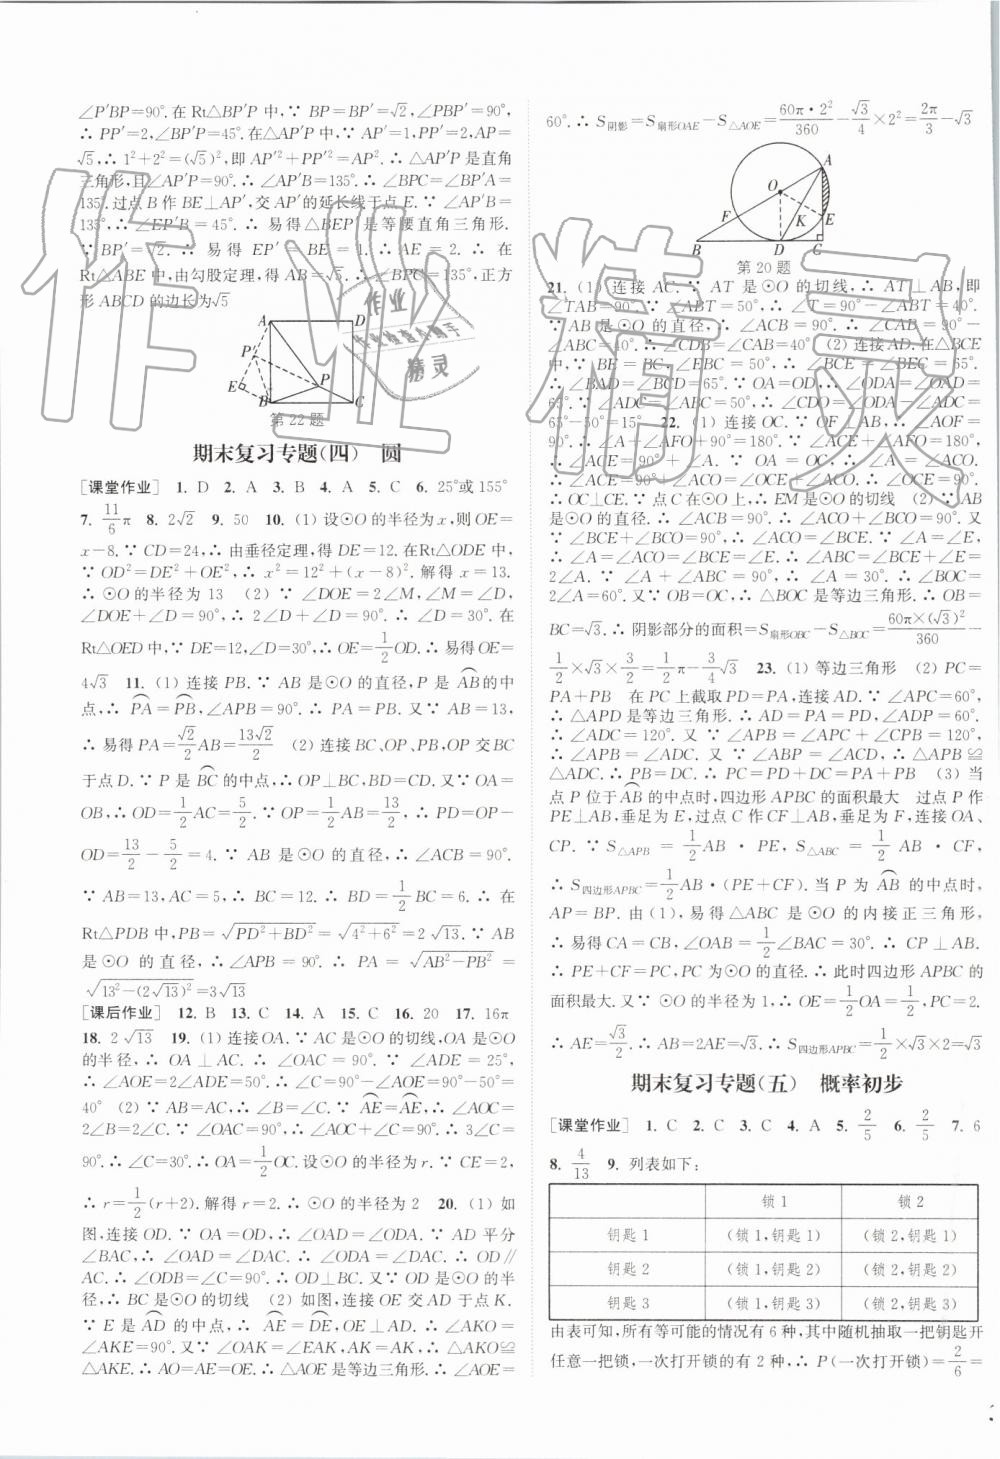 ∠P′BP=90°.在Rt△BP′P中,∵ BP=BP′=√2,∠PBP′=90°,
∴ PP′=2,∠BP′P=45°.在△AP′P中,∵ AP′=1,PP′=2,AP=
√5,∴ 1²+2²=(√5)²,即AP′²+PP′²=AP².∴ △AP′P是直角
三角形,且∠AP′P=90°.∴ ∠AP′B=135°.∴ ∠BPC=∠BP′A=
135°.过点B作BE⊥AP′,交AP′的延长线于点E.∵ ∠AP′B=
135°,∴ ∠EP′B=45°.∴ 易得△BEP′是等腰直角三角形.
∵ BP′=√2,∴ 易得EP′=BE=1.∴ AE=2.∴ 在
Rt△ABE中,由勾股定理,得AB=√5.∴ ∠BPC=135°,正方
形ABCD的边长为√5
A D P′ P E B C
第22题
期末复习专题(四) 圆
[课堂作业] 1. D 2. A 3. B 4. A 5. C 6. 25°或155°
7. 11/6π 8. 2√2 9. 50 10. (1) 设⊙O的半径为x,则OE=
x-8.∵ CD=24,∴ 由垂径定理,得DE=12.在Rt△ODE中,
∵ OD²=DE²+OE²,∴ x²=12²+(x-8)².解得x=13.
∴ ⊙O的半径为13 (2) ∵ ∠DOE=2∠M,∠M=∠D,
∠DOE+∠D=90°,∴ 2∠D+∠D=90°.∴ ∠D=30°.在
Rt△OED中,∵ DE=12,∠D=30°,∴ OE=1/2OD.∴ 易得OE=
4√3 11. (1) 连接PB.∵ AB是⊙O的直径,P是⌒AB的中
点,∴ ⌒PA=⌒PB,∠APB=90°.∴ PA=PB.又∵ AB=13,
∴ 易得PA=√2/2AB=13√2/2 (2) 连接BC、OP、PB,OP交BC
于点D.∵ P是⌒BC的中点,∴ OP⊥BC,BD=CD.又∵ OA=
OB,∴ OD=1/2AC=5/2.∵ OP=1/2AB=13/2,∴ PD=OP-
OD=13/2-5/2=4.∵ AB是⊙O的直径,∴ ∠ACB=90°.
∵ AB=13,AC=5,∴ BC=12.∴ BD=1/2BC=6.∴ 在
Rt△PDB中,PB=√(PD²+BD²)=√(4²+6²)=2√13.∵ AB
是⊙O的直径,∴ ∠APB=90°.∴ PA=√(AB²-PB²)=
√(13²-(2√13)²)=3√13
[课后作业] 12. B 13. C 14. A 15. C 16. 20 17. 16π
18. 2√13 19. (1) 连接OA.∵ AC是⊙O的切线,OA是⊙O
的半径,∴ OA⊥AC.∴ ∠OAC=90°.∵ ∠ADE=25°,
∴ ∠AOE=2∠ADE=50°.∴ ∠C=90°-∠AOE=90°-50°=
40° (2) ∵ AB=AC,∴ ∠B=∠C.∵ ⌒AE=⌒AE,∴ ∠AOC=
2∠B=2∠C.∵ ∠OAC=90°,∴ ∠AOC+∠C=90°.∴ 3∠C=
90°.∴ ∠C=30°.∴ OA=1/2OC.设⊙O的半径为r.∵ CE=2,
∴ r=1/2(r+2).解得r=2.∴ ⊙O的半径为2 20. (1) 如
图,连接OD.∵ OA=OD,∴ ∠OAD=∠ODA.∵ AD平分
∠BAC,∴ ∠OAD=∠DAC.∴ ∠ODA=∠DAC.∴ OD∥
AC.∴ ∠ODB=∠C=90°.∴ OD⊥BC.又∵ OD是⊙O的半
径,∴ BC是⊙O的切线 (2) 如图,连接OE交AD于点K.
∵ E是⌒AD的中点,∴ ⌒AE=⌒DE,OE⊥AD.∴ ∠AKO=
∠AKE=90°.又∵ ∠OAK=∠EAK,AK=AK,∴ △AKO≌
△AKE.∴ AO=AE=OE.∴ △AOE是等边三角形.∴ ∠AOE=
60°.∴ S阴影=S扇形OAE-S△AOE=60π·2²/360-√3/4×2²=2π/3-√3
A O F K E B D C
第20题
21. (1) 连接AC.∵ AT是⊙O的切线,∴ AT⊥AB,即
∠TAB=90°.∵ ∠ABT=50°,∴ ∠T=90°-∠ABT=40°.
∵ AB是⊙O的直径,∴ ∠ACB=90°.∴ ∠CAB=90°-
∠ABC=40°.∴ ∠CDB=∠CAB=40° (2) 连接AD.在△BCE
中,∵ BE=BC,∠EBC=50°,∴ ∠BCE=∠BEC=65°.
∴ ∠BAD=∠BCD=65°.∵ OA=OD,∴ ∠ODA=∠OAD=
65°.∵ ∠ADC=∠ABC=50°,∴ ∠CDO=∠ODA-∠ADC=
65°-50°=15° 22. (1) 连接OC.∵ OF⊥AB,∴ ∠AOF=
90°.∴ ∠A+∠AFO=90°.
∴ ∠OCE=90°.
∴ OC⊥CE.∵ 点C在⊙O上,∴ EM是⊙O的切线 (2) ∵ AB
是⊙O的直径,∴ ∠ACB=90°.∴ ∠ACO+∠BCO=90°.又
∵ ∠BCE+∠BCO=90°,∴ ∠ACO=∠BCE.∵ ∠A=∠E,
∴ ∠A=∠ACO=∠BCE=∠E.∴ ∠ABC=∠BCE+∠E=
2∠A.∵ ∠A+∠ABC=90°,∴ ∠A=30°.∴ ∠BOC=
2∠A=60°.又∵ OB=OC,∴ △BOC是等边三角形.∴ OB=
BC=√3.∴ 阴影部分的面积=S扇形OBC-S△BOC=60π×(√3)²/360-
1/2×√3×3/2=1/2π-3/4√3 23. (1) 等边三角形 (2) PC=
PA+PB 在PC上截取PD=PA,连接AD.∵ ∠APC=60°,
∴ △APD是等边三角形.∴ AD=PA=PD,∠ADP=60°.
∴ ∠ADC=120°.又∵ ∠APB=∠APC+∠CPB=120°,
∴ ∠APB=∠ADC.又∵ ∠ABP=∠ACD,∴ △APB≌
△ADC.∴ PB=DC.∴ PC=PD+DC=PA+PB (3) 当
点P位于⌒AB的中点时,四边形APBC的面积最大 过点P作
PE⊥AB,垂足为E,过点C作CF⊥AB,垂足为F,连接OA、
CP.∵ S△APB=1/2AB·PE,S△ABC=1/2AB·CF,
∴ S四边形APBC=1/2AB·(PE+CF).当P为⌒AB的中点时,
AP=BP.由(1),易得△ABC是⊙O的内接正三角形,
∴ 易得CA=CB,∠OAB=1/2∠BAC=30°.∴ CP⊥AB.
∴ PE+CF=PC,PC为⊙O的直径.∴ 此时四边形APBC的
面积最大.∵ ⊙O的半径为1,∴ OE=1/2OA=1/2,PC=2.
∴ AE=√3/2.∴ AB=2AE=√3.∴ S四边形APBC=1/2×√3×2=√3
期末复习专题(五) 概率初步
[课堂作业] 1. C 2. C 3. C 4. A 5. 2/5 6. 2/5 7. 6
8. 4/13 9. 列表如下:
锁1 锁2
钥匙1 (锁1,钥匙1) (锁2,钥匙1)
钥匙2 (锁1,钥匙2) (锁2,钥匙2)
钥匙3 (锁1,钥匙3) (锁2,钥匙3)
由表可知,所有等可能的情况有6种,其中随机抽取一把钥匙开
任意一把锁,一次打开锁的有2种,∴ P(一次打开锁)=2/6=
作业精灵